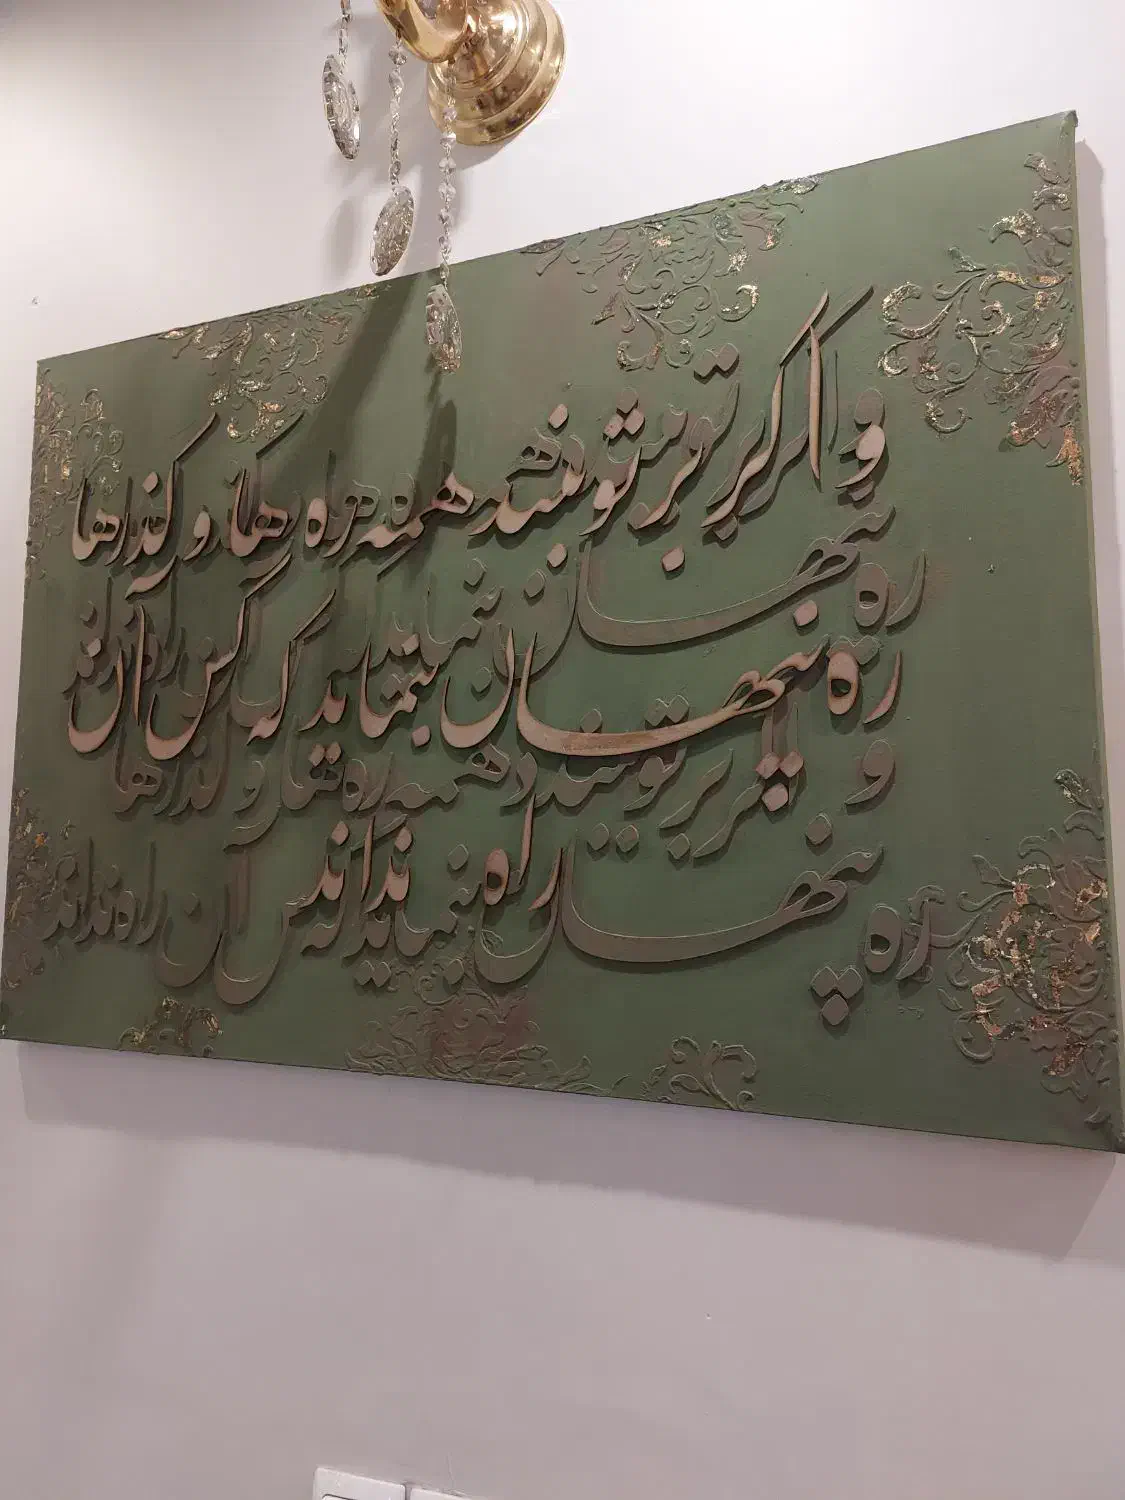 و اگر بر تو ببندد همه ره ها و گذرها
ره پنهان بنماید که کس آن
راه نداند
و اگر بر تو ببندد همه ره ها و گذرها
ره پنهان بنماید که کس آن راه نداند